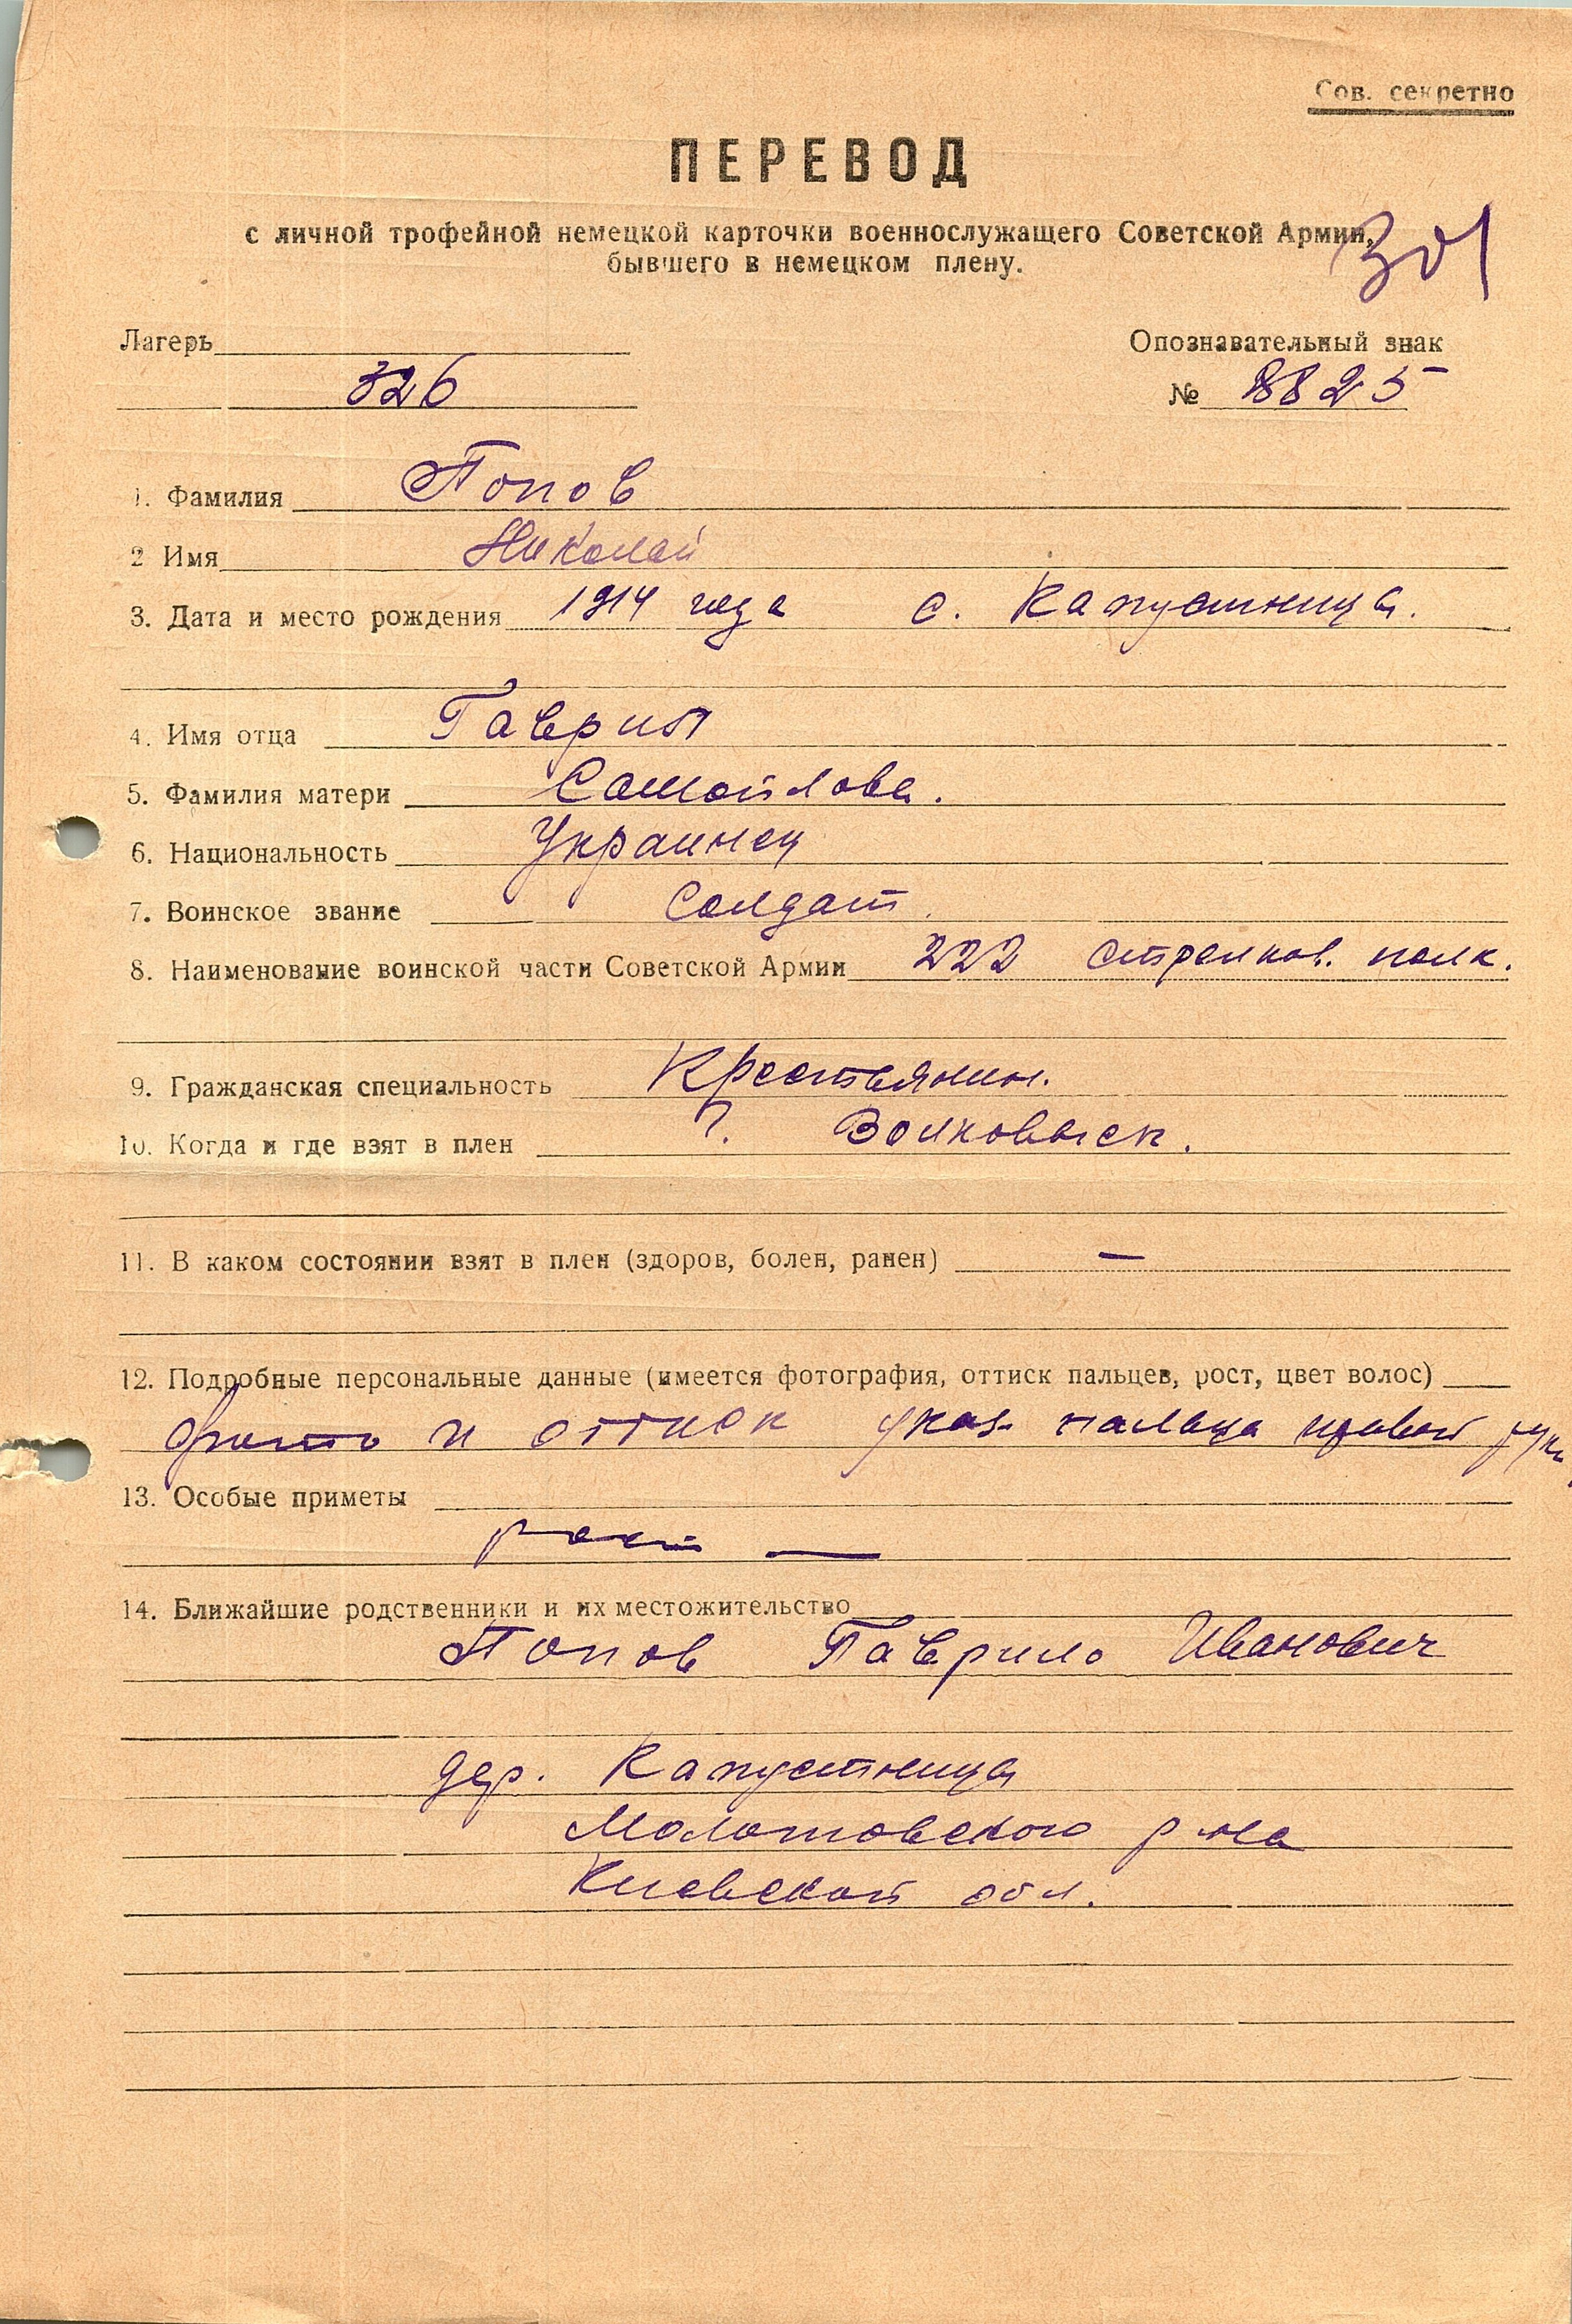 Сов. секретно
ПЕРЕВОД
с личной трофейной немецкой карточки военнослужащего Советской Армии,
бывшего в немецком плену.
301
Лагерь
Опознавательный знак
326
№ 8825
1. Фамилия Попов
2 Имя Николай
3. Дата и место рождения 1914 года с. Капустница.
4. Имя отца Гаврил
5. Фамилия матери Самойлова.
6. Национальность Украинец
7. Воинское звание Солдат.
8. Наименование воинской части Советской Армии 222 стрелков. полк.
9. Гражданская специальность Крестьянин.
10. Когда и где взят в плен ?. Волковыск.
11. В каком состоянии взят в плен (здоров, болен, ранен) —
12. Подробные персональные данные (имеется фотография, оттиск пальцев, рост, цвет волос)
Фото и оттиск указ. пальца правой руки
13. Особые приметы
рост —
14. Ближайшие родственники и их местожительство
Попов Гаврило Иванович
дер. Капустница
Молотовского р-на
Киевской обл.